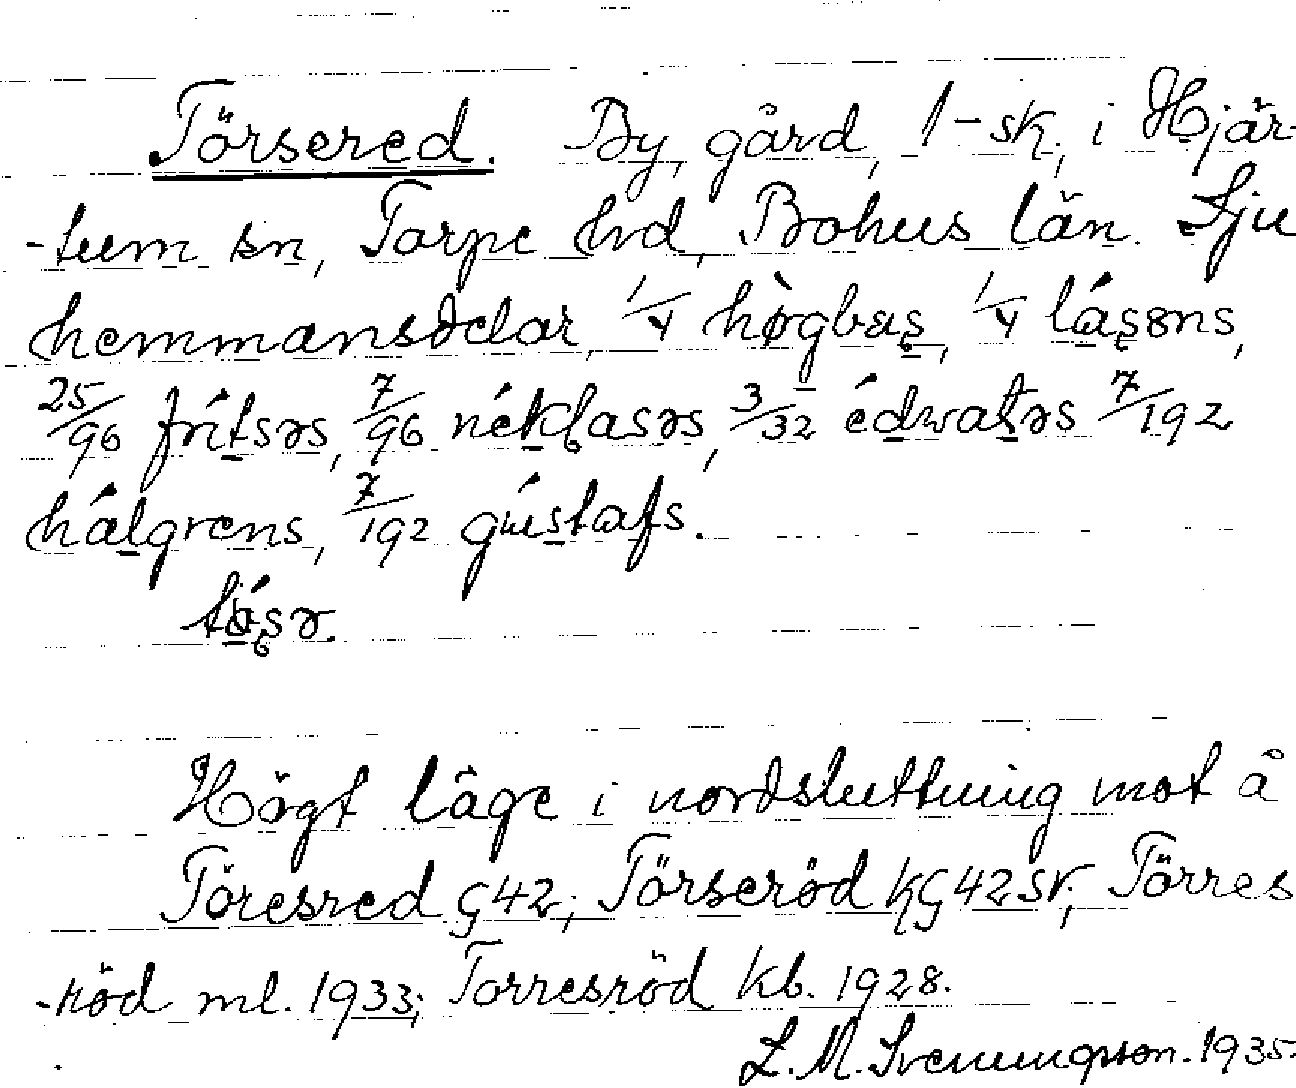 Törsered. By, gård, 1-sk, i Hjär-
-tum sn, Torpe hd, Bohus län. Sju
hemmansdelar, 1/4 hògbas, 1/4 lásøns,
25/96 frítsəs, 7/96 néklasəs, 3/32 édwatəs 7/192
hálgrens, 7/192 gústafs.
tǿsə.
Högt läge i nordsluttning mot å
Töresred G42; Törseröd KG42SV; Törres
-röd ml. 1933; Torresröd Kb. 1928.
L. M. Svenungsson. 1935.